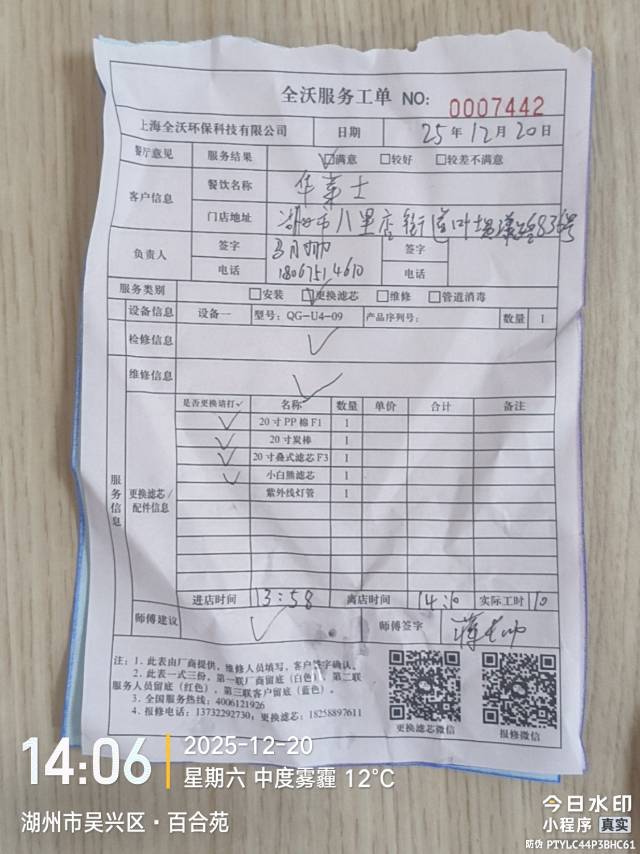 全沃服务工单 NO: 0007442
上海全沃环保科技有限公司 日期 25年12月20日
餐厅意见 服务结果 ☑满意 □较好 □较差不满意
客户信息 餐饮名称 华莱士
门店地址 湖州市八里店街道 836号
负责人 签字 签字
电话 18067514610 电话
服务类别 □安装 ☑更换滤芯 □维修 □管道消毒
设备信息 设备一 型号: QG-U4-09 产品序列号: 数量 1
检修信息 ✓
维修信息 ✓
是否更换请打✓ 名称 数量 单价 合计 备注
✓ 20寸PP棉F1 1
✓ 20寸炭棒 1
✓ 20寸叠式滤芯F3 1
✓ 小白熊滤芯 1
紫外线灯管 1
服务信息 更换滤芯/配件信息
进店时间 13:58 离店时间 14:10 实际工时 10
师傅建议 ✓ 师傅签字
注: 1. 此表由厂商提供, 维修人员填写, 客户签字确认。
2. 此表一式三份, 第一联厂商留底(白色), 第二联
服务人员留底(红色), 第三联客户留底(蓝色)。
3. 全国服务热线: 4006121926
4. 报修电话: 13732292730; 更换滤芯: 18258897611
更换滤芯微信 报修微信
14:06 2025-12-20
星期六 中度雾霾 12°C
湖州市吴兴区·百合苑
今日水印
小程序 真实
防伪 PTYLC44P3BHC61